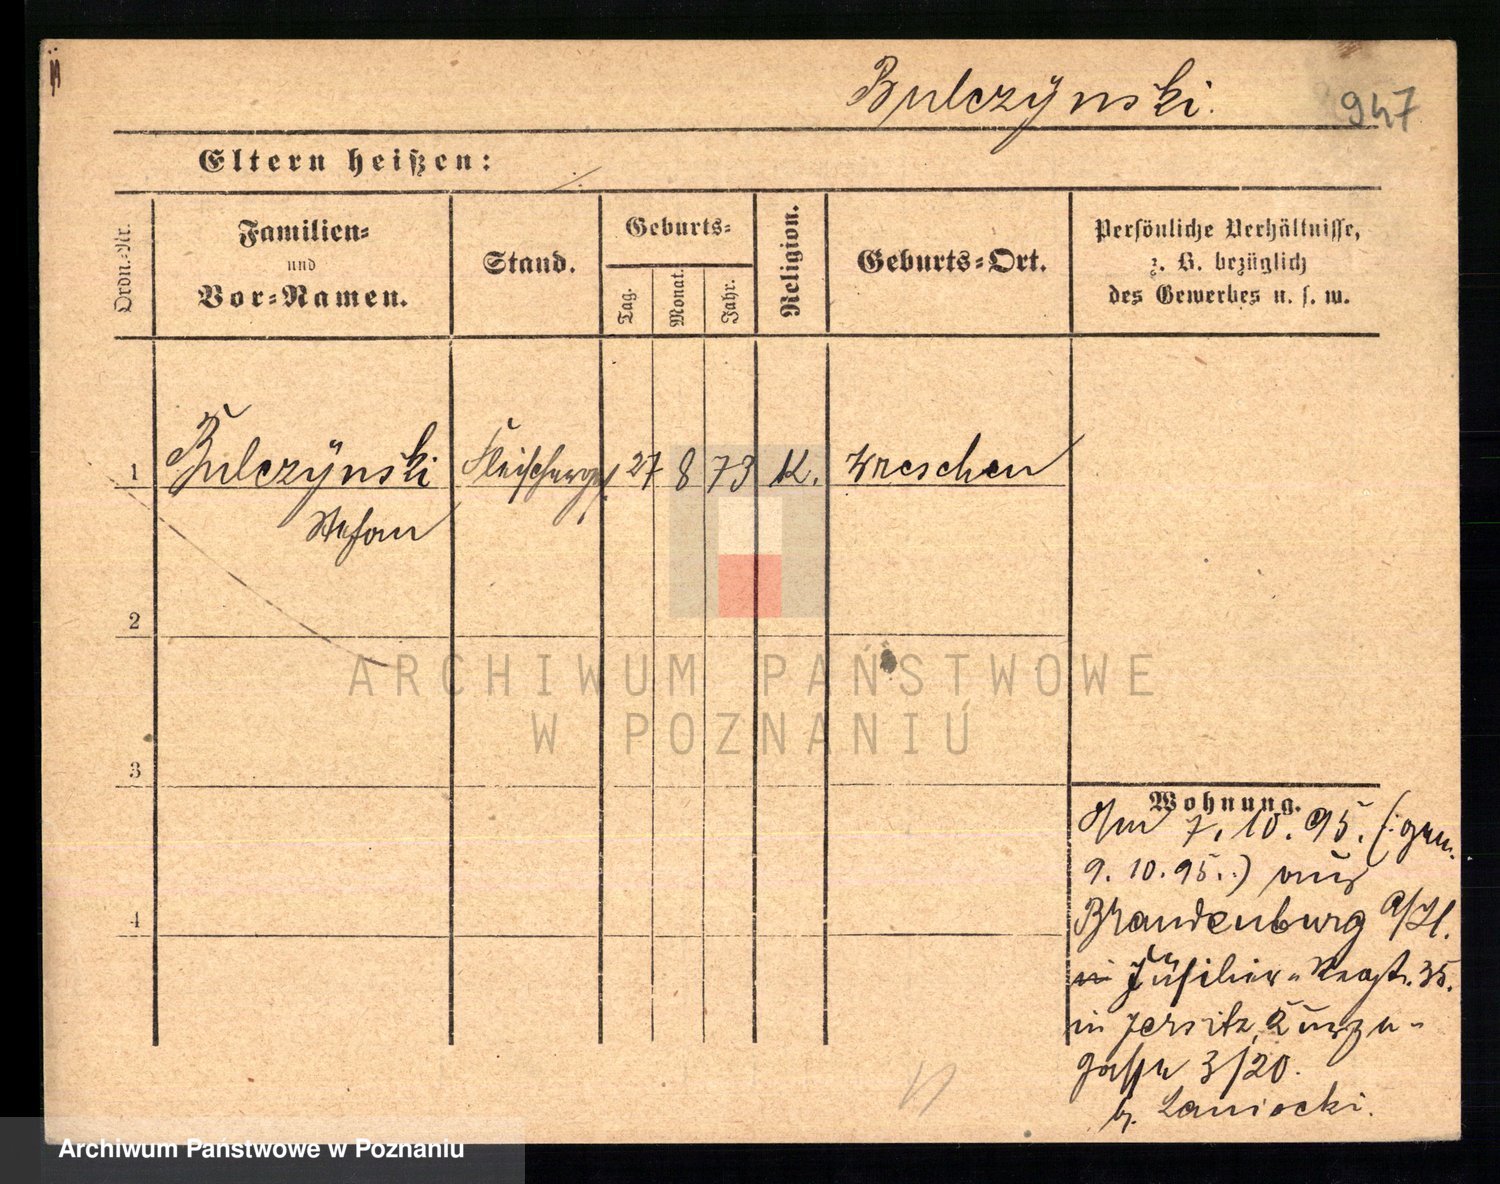 Bulczÿnski.
947
Eltern heißen:
Ordn.-Nr.
Familien-
und
Vor-Namen.
Stand.
Geburts-
Tag.
Monat.
Jahr.
Religion.
Geburts-Ort.
Persönliche Verhältnisse,
z. B. bezüglich
des Gewerbes u. s. w.
1 Bulczÿnski Fleischerges. 27 8 73 K. Wreschen
Stefan
2
3
4
ARCHIWUM PAŃSTWOWE
W POZNANIU
Wohnung.
7. 10. 95. (: gem.
9. 10. 95. :) aus
Brandenburg a/H.
Füsilier-Regt. 35.
in Jersitz, Kurze-
gasse 3/20.
b. Laniecki.
Archiwum Państwowe w Poznaniu